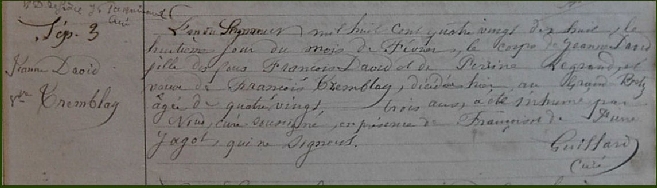 Curé
Sép. 3
Jeanne David
Vve Tremblay
L'an du Seigneur mil huit cent quatre vingt dix huit, le
huitième jour du mois de Février, le corps de Jeanne David
fille des feus François David et de Perrine Legrand, et
veuve de François Tremblay, décédée hier, au Grand
âgée de quatre vingt trois ans, a été inhumé par
Nous, curé soussigné, en présence de Françoise de Pierre
Jagot, qui ne signent.
Guillard
Curé